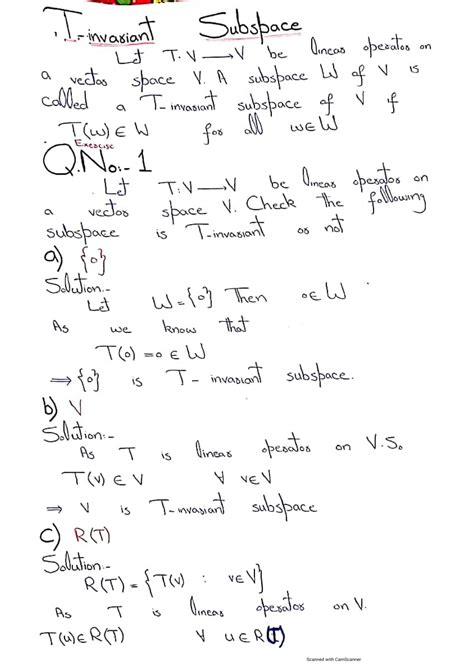 T-invariant Subspace
Let T: V → V be linear operator on
a vector space V. A subspace W of V is
called a T-invariant subspace of V if
T(w) ∈ W for all w ∈ W
Exercise
Q.No:- 1
Let T: V → V be linear operator on
a vector space V. Check the following
subspace is T-invariant or not
a) {0}
Solution:-
Let W = {0} Then 0 ∈ W
As we know that
T(0) = 0 ∈ W
⇒ {0} is T-invariant subspace.
b) V
Solution:-
As T is linear operator on V.S.
T(v) ∈ V ∀ v ∈ V
⇒ V is T-invariant subspace
c) R(T)
Solution:-
R(T) = {T(v) : v ∈ V}
As T is linear operator on V.
T(u) ∈ R(T) ∀ u ∈ R(T)
Scanned with CamScanner